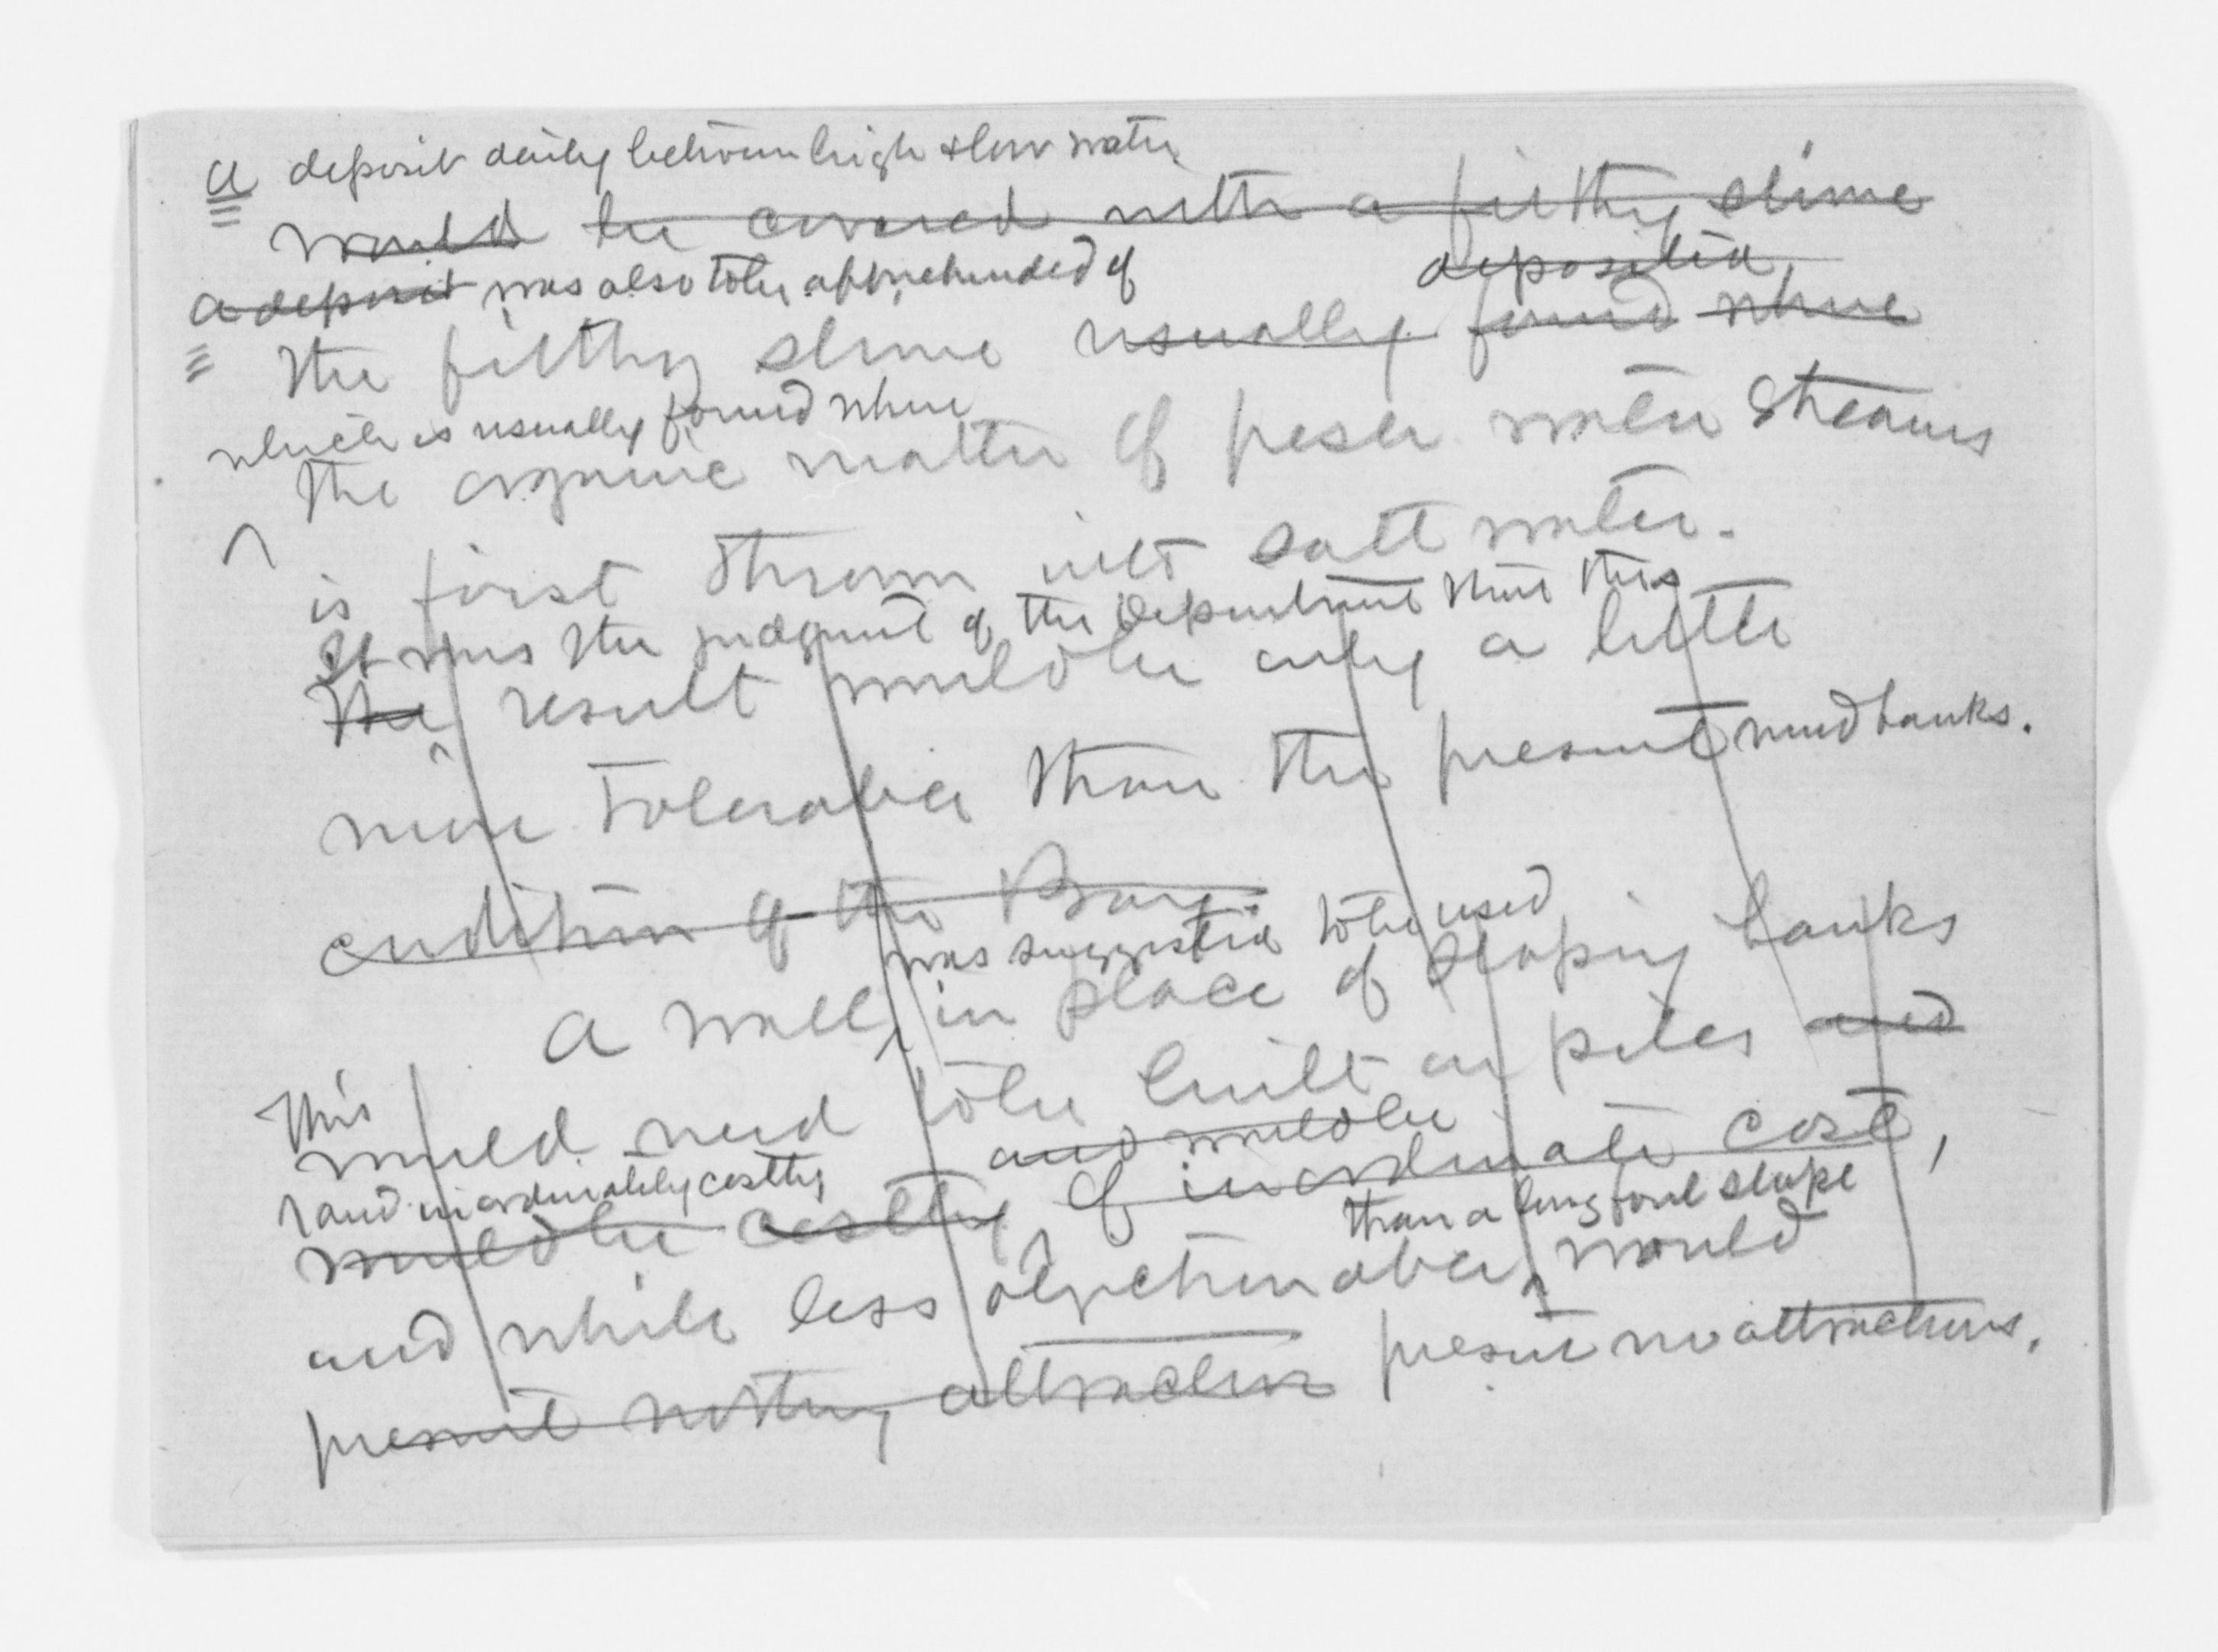 A deposit daily between high & low water
would be covered with a filthy slime
a deposit was also to be apprehended of
deposited,
the filthy slime usually found where
which is usually found where
the organic matter of fresh water streams
is first thrown into salt water.
It was the judgment of the Department that this
The result would be only a little
more tolerable than the present mud banks.
condition of the Bay.
was suggested to be used
A wall, in place of sloping banks
This
would need to be built on piles and
and would be
and inordinately costly
would be costly of inordinate cost,
than a long foul slope
and while less objectionable, would
present nothing attractive present no attractions.